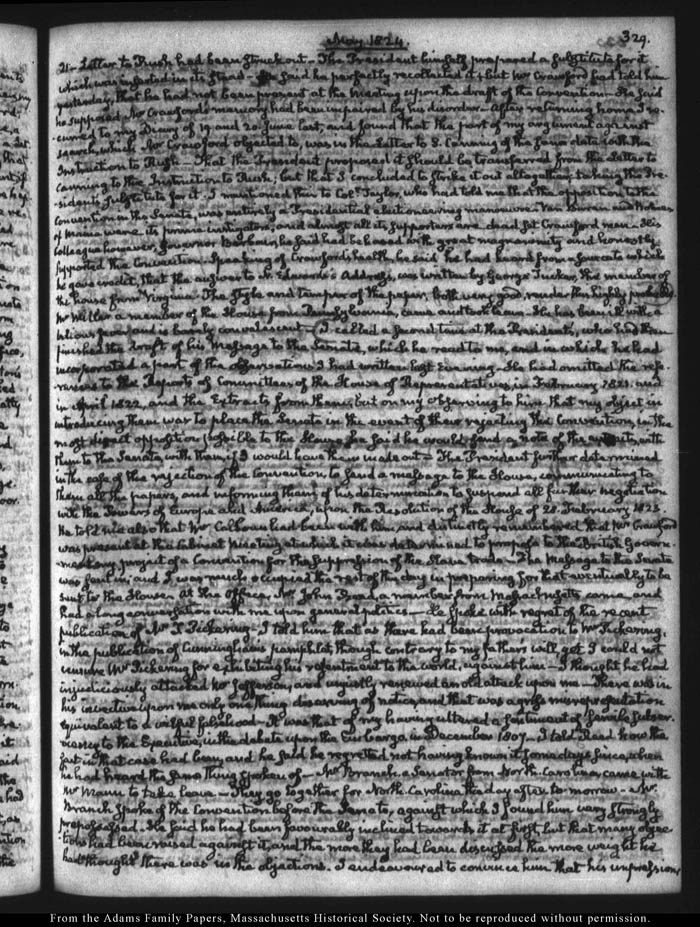 May 1824.
329.
21. Letter to Rush had been struck out — The President himself prepared a substitute for it
which was inserted in its stead — He said he perfectly recollected it, but Mr Crawford had told him
yesterday, that he had not been present at the meeting upon the draft of the Convention — He said
he supposed Mr Crawford's memory had been impaired by his disorder — After returning home I re-
curred to my Diary of 19 and 20 June last, and found that the part of my argument against
search, which Mr Crawford objected to, was in the Letter to S. Canning of the same date with the
Instruction to Rush — That the President proposed it should be transferred from the Letter to
Canning to the Instruction to Rush, but that I concluded to strike it out altogether, taking the Pre-
sident's substitute for it. I mentioned this to Coll. Taylor, who had told me that the opposition to the
Convention in the Senate, was entirely a Presidential electioneering manoeuvre — Van Buren and Holmes
of Maine were its prime instigators, and almost all its supporters are dead set Crawford men — His
colleague however, Governor Barbour, he said had behaved with great magnanimity and honestly
supported the Convention — Speaking of Crawford's health, he said he had heard from a source to which
he gave credit, that the answer to N. Edwards's Address, was written by George Tucker, the member of
the house from Virginia. The style and temper of the paper, both very good, render this highly probable.
Mr Udree a member of the House from Pennsylvania, came and took leave — He has been ill with a
bilious fever and is barely convalescent — I called a second time at the President's, who had then
finished the draft of his Message to the Senate, which he read to me, and in which he had
incorporated a part of the observations I had written last Evening. He had omitted the refe-
rences to the Reports of Committees of the House of Representatives, in February 1821. and
in April 1822. and the Extracts from them; but on my observing to him that my object in
introducing them was to place the Senate in the event of their rejecting the Convention, in the
most direct opposition possible to the House he said he would send a note of the extracts, with
them to the Senate, with them, if I would have them made out — The President further determined
in the case of the rejection of the Convention, to send a message to the House, communicating to
them all the papers, and informing them of his determination to suspend all further negotiation
with the Powers of Europe and America, upon the Resolution of the House of 28. February 1823.
He told me also that Mr Calhoun had been with him, and distinctly remembered that Mr Crawford
was present at the Cabinet Meeting at which it was determined to propose to the British Govern-
ment any project of a Convention for the suppression of the Slave trade — The Message to the Senate
was sent in, and I was much occupied the rest of the day in preparing for that eventually to be
sent to the House. At the Office, Mr John Reed, a member from Massachusetts came and
had a long conversation with me upon general politics — He spoke with regret of the recent
publication of Mr T. Pickering — I told him that as there had been provocation to Mr Pickering,
in the publication of Cunningham's pamphlet, though contrary to my father's will, yet I could not
censure Mr Pickering for exhibiting his resentment to the world, against him — I thought he had
injudiciously attacked Mr Jefferson, and unjustly renewed an old attack upon me — There was in
his invective upon me only one thing deserving of notice, and that was a gross misrepresentation
equivalent to a wilful falsehood — It was that of my having uttered a sentiment of servile subser-
viency to the Executive, in the debate upon the Embargo, in December 1807. I told Reed how the
fact in that case had been, and he said he regretted not having known it some days since, when
he had heard the same thing spoken of — Mr Branch a Senator from North-Carolina, came with
Mr Mann to take leave — They go together for North Carolina the day after to-morrow — Mr
Branch spoke of the Convention before the Senate, against which I found him very strongly
prepossessed. He said he had been favourably inclined towards it at first, but that many objec-
tions had been raised against it, and the more they had been discussed the more weight he
had thought there was in the objections. I endeavoured to convince him that his impressions
From the Adams Family Papers, Massachusetts Historical Society. Not to be reproduced without permission.